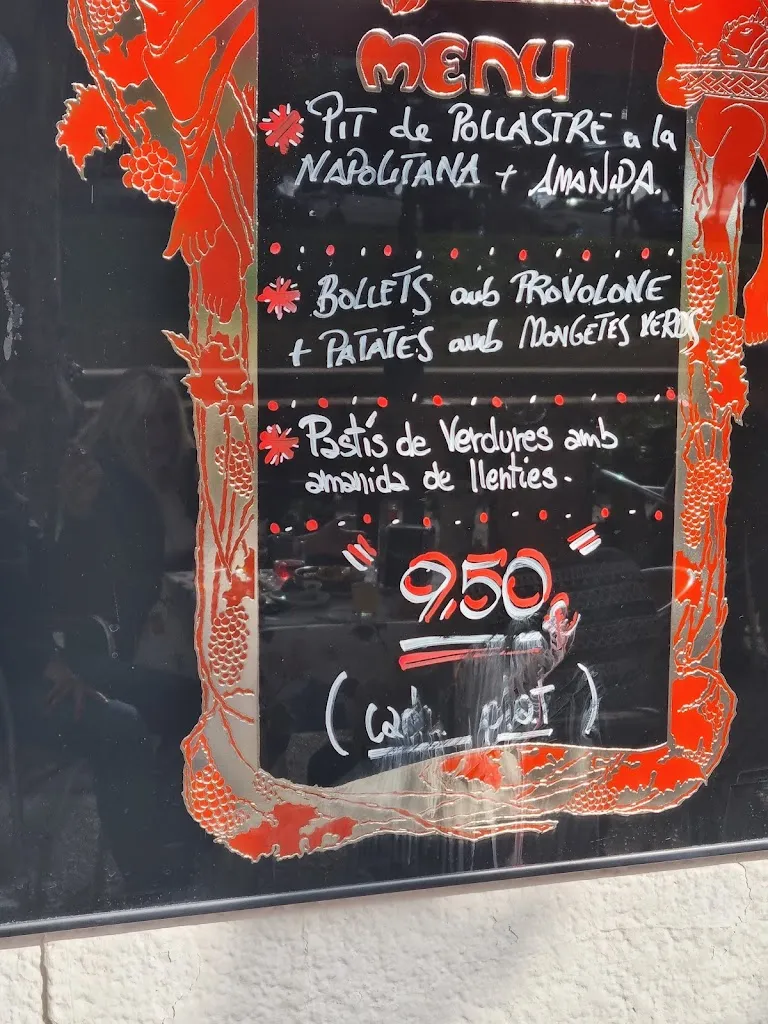 MENU
PIT de POLLASTRE a la
NAPOLITANA + AMANIDA.
BOLLETS amb PROVOLONE
+ PATATES amb MONGETES VERDS
Pastís de Verdures amb
amanida de llenties.
9,50€
( cada plat )